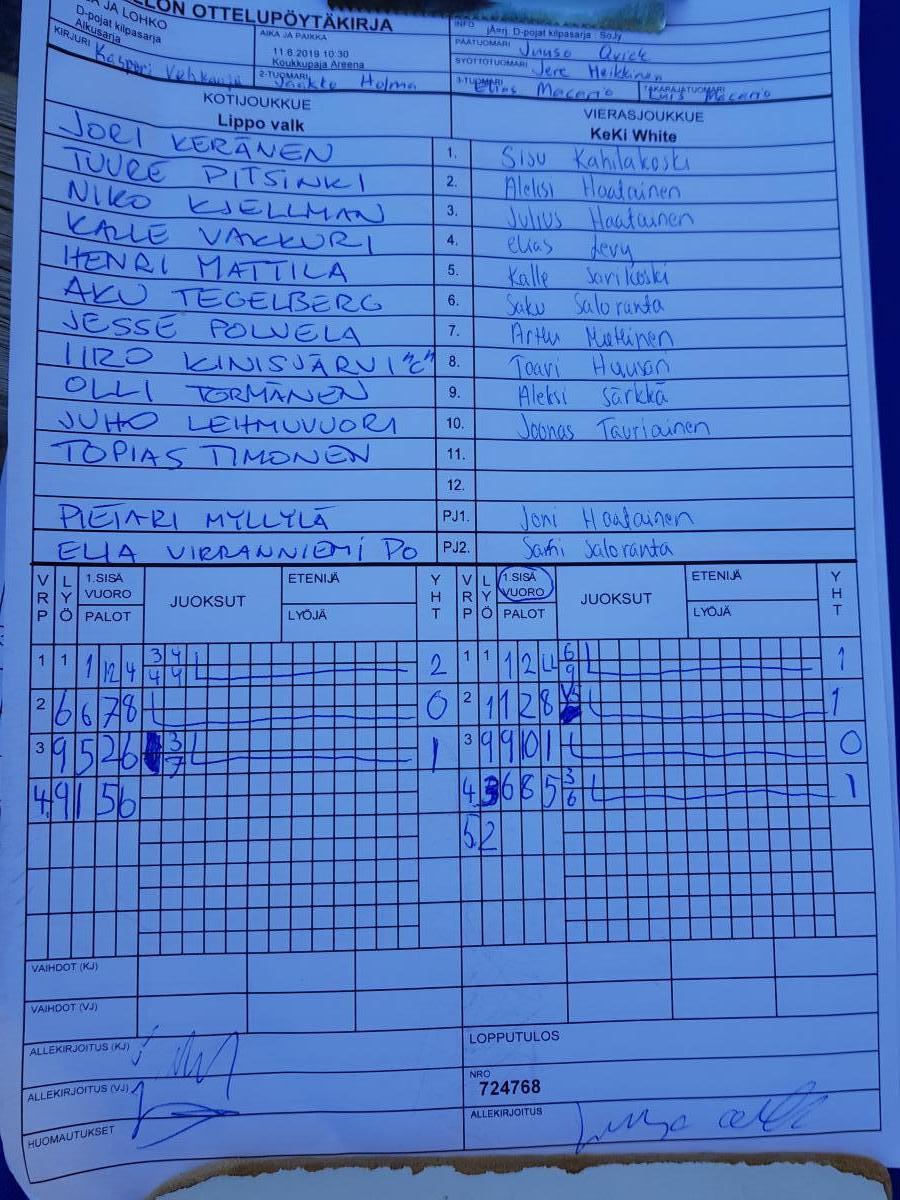 ELON OTTELUPÖYTÄKIRJA
A JA LOHKO
D-pojat kilpasarja
Alkusarja
AIKA JA PAIKKA
11.6.2019 10:30
Koukkupaja Areena
INFO
D-pojat kilpasarja SoJy
PÄÄTUOMARI Juuso
SYÖTTÖTUOMARI Jere Heikkinen
KIRJURI Kasperi
2-TUOMARI Jaakko Holma
3-TUOMARI Elias Macario
TAKARAJATUOMARI Luis Macario
KOTIJOUKKUE
Lippo valk
VIERASJOUKKUE
KeKi White
JORI KERÄNEN 1. Sisu Kahilakoski
TUURE PITSINKI 2. Aleksi Haatainen
NIKO KJELLMAN 3. Julius Haatainen
KALLE VAKKURI 4. elias Levy
HENRI MATTILA 5. Kalle Sarikoski
AKU TEGELBERG 6. Saku Saloranta
JESSE POLVELA 7. Arttu Miettinen
IIRO KINISJÄRVI "C" 8. Taavi
OLLI TÖRMÄNEN 9. Aleksi Särkkä
JUHO LEIHMUVUORI 10. Joonas Tauriainen
TOPIAS TIMONEN 11.
12.
PIETARI MYLLYLÄ PJ1. Joni Haatainen
ELIA VIRRANNIEMI PO PJ2. Sami Saloranta
VRP LYÖ 1.SISÄ VUORO PALOT JUOKSUT ETENIJÄ LYÖJÄ YHT VRP LYÖ 1.SISÄ VUORO PALOT JUOKSUT ETENIJÄ LYÖJÄ YHT
1 1 1 12 4 3/4 4/4 2 1 1 1 2 4 6/9 1
2 6 6 7 8 0 2 11 1 2 8 1
3 9 5 2 6 3/7 1 3 9 9 10 1 0
4. 9 1 5 6 4. 3 6 8 5 3/6 1
5. 2
VAIHDOT (KJ)
VAIHDOT (VJ)
ALLEKIRJOITUS (KJ)
LOPPUTULOS
ALLEKIRJOITUS (VJ)
NRO
724768
HUOMAUTUKSET
ALLEKIRJOITUS